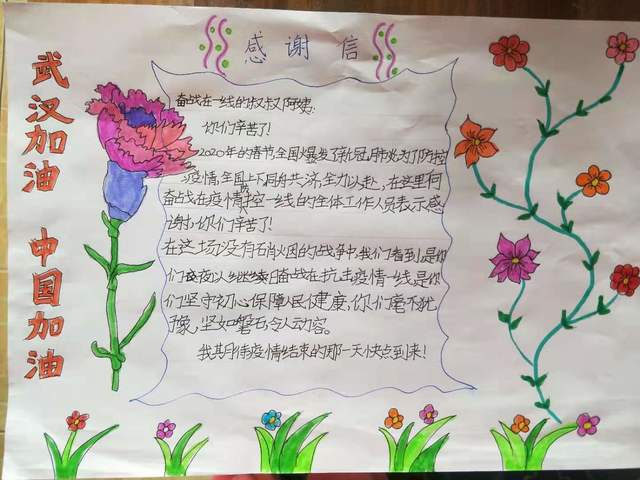 感谢信
武汉加油 中国加油
奋战在一线的叔叔阿姨:
你们辛苦了!
2020年的春节,全国爆发了新冠肺炎为了防控
疫情,全国上下同舟共济,全力以赴,在这里向
奋战在疫情防控一线的全体工作人员表示感
谢,你们辛苦了!
在这场没有硝火因的战争中,我们看到是你
们夜以继续日奋战在抗击疫情一线,是你
们坚守初心保障人民健康,你们毫不犹
豫,坚如磐石令人动容。
我期待疫情结束的那一天快点到来!